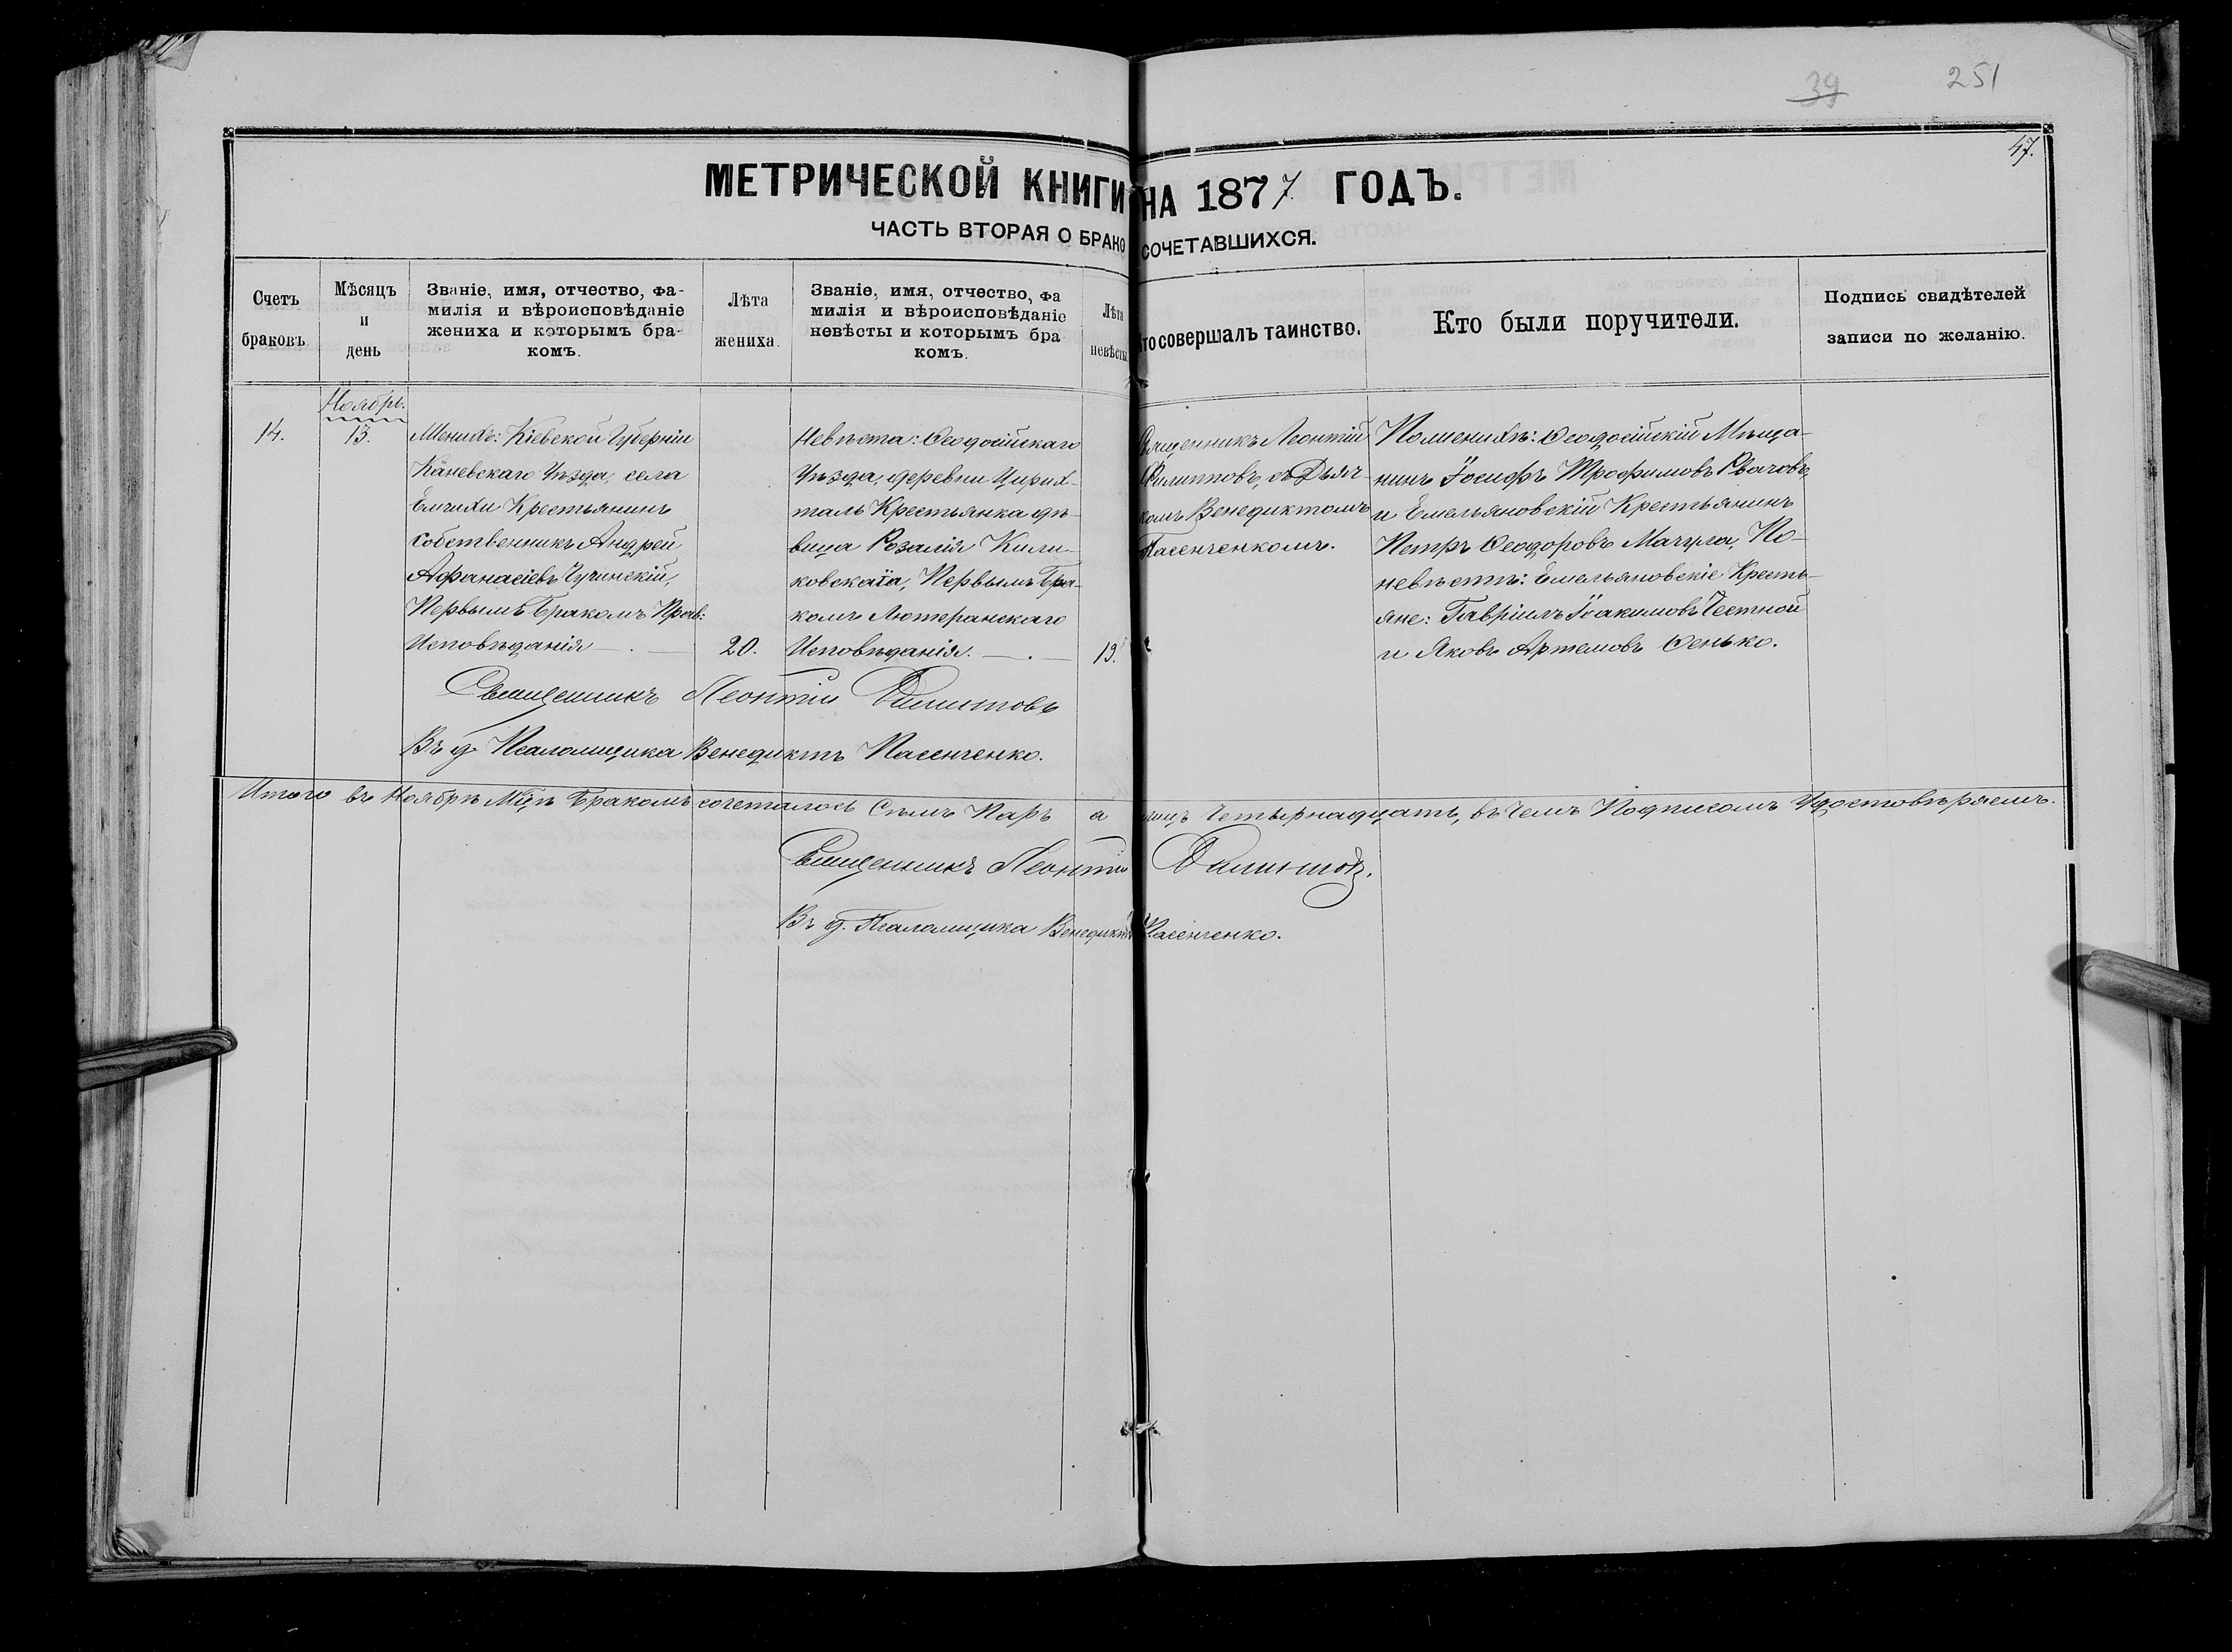 39
251
47.
МЕТРИЧЕСКОЙ КНИГИ НА 1877 ГОДЪ.
ЧАСТЬ ВТОРАЯ О БРАКОСОЧЕТАВШИХСЯ.
Счетъ
браковъ.
Мѣсяцъ
и
день
Званіе, имя, отчество, фа-
милія и вѣроисповѣданіе
жениха и которымъ бра-
комъ.
Лѣта
жениха.
Званіе, имя, отчество, фа
милія и вѣроисповѣданіе
невѣсты и которымъ бра
комъ.
Лѣта
невѣсты
Кто совершалъ таинство.
Кто были поручители.
Подпись свидѣтелей
записи по желанію.
14.
Ноябрь.
13.
Женихъ: Кіевской Губерніи
Каневскаго Уѣзда, села
Емчихи Крестьянинъ
собственникъ Андрей
Афанасіевъ Чучинскій,
Первымъ бракомъ Прав:
Исповѣданія
20.
Невѣста: Ѳеодосійскаго
Уѣзда, деревни Цирих-
таль Крестьянка дѣ-
вица Розалія Кили-
ковская, Первымъ бра-
комъ Лютеранскаго
Исповѣданія.
19.
Священникъ Леонтій
Филипповъ, съ Дьяч-
комъ Венедиктомъ
Пасенченкомъ.
По женихѣ: Ѳеодосійскій Мѣща-
нинъ Іосифъ Трофимовъ Рвачовъ,
и Емельяновскій Крестьянинъ
Петръ Ѳеодоровъ Мачула, По
невѣстѣ: Емельяновскіе Кресть-
яне: Гавріилъ Іоакимовъ Честной
и Яковъ Артемовъ Сенько.
Священникъ Леонтій Филипповъ
Въ д. Псаломщика Венедиктъ Пасенченко.
Итого въ Ноябрѣ Мцѣ бракомъ сочеталось Семь Паръ а лицъ Четырнадцать, въ чемъ Подписомъ Удостовѣряемъ.
Священникъ Леонтій Филипповъ.
Въ д. Псаломщика Венедиктъ Пасенченко.